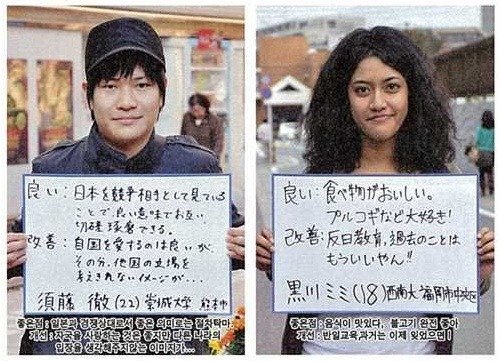 良い：日本を競争相手として見ている
ことで良い意味でお互い
切磋琢磨できる。
改善：自国を愛するのは良いが、
その分、他国の立場を
考えきれないイメージが...
須藤 徹(22) 崇城大学 熊本市
좋은점 : 일본과 경쟁상대로서 좋은 의미로는 절차탁마
개선 : 자국을 사랑하는 것은 좋지만 다른 나라의
입장을 생각해주지않는 이미지가...
良い：食べ物がおいしい。
プルコギなど大好き!
改善：反日教育、過去のことは
もういいやん!!
黒川 ミミ(18) 西南大 福岡市中央区
좋은점 : 음식이 맛있다, 불고기 완전 좋아
개선 : 반일교육과거는 이제 잊었으면!